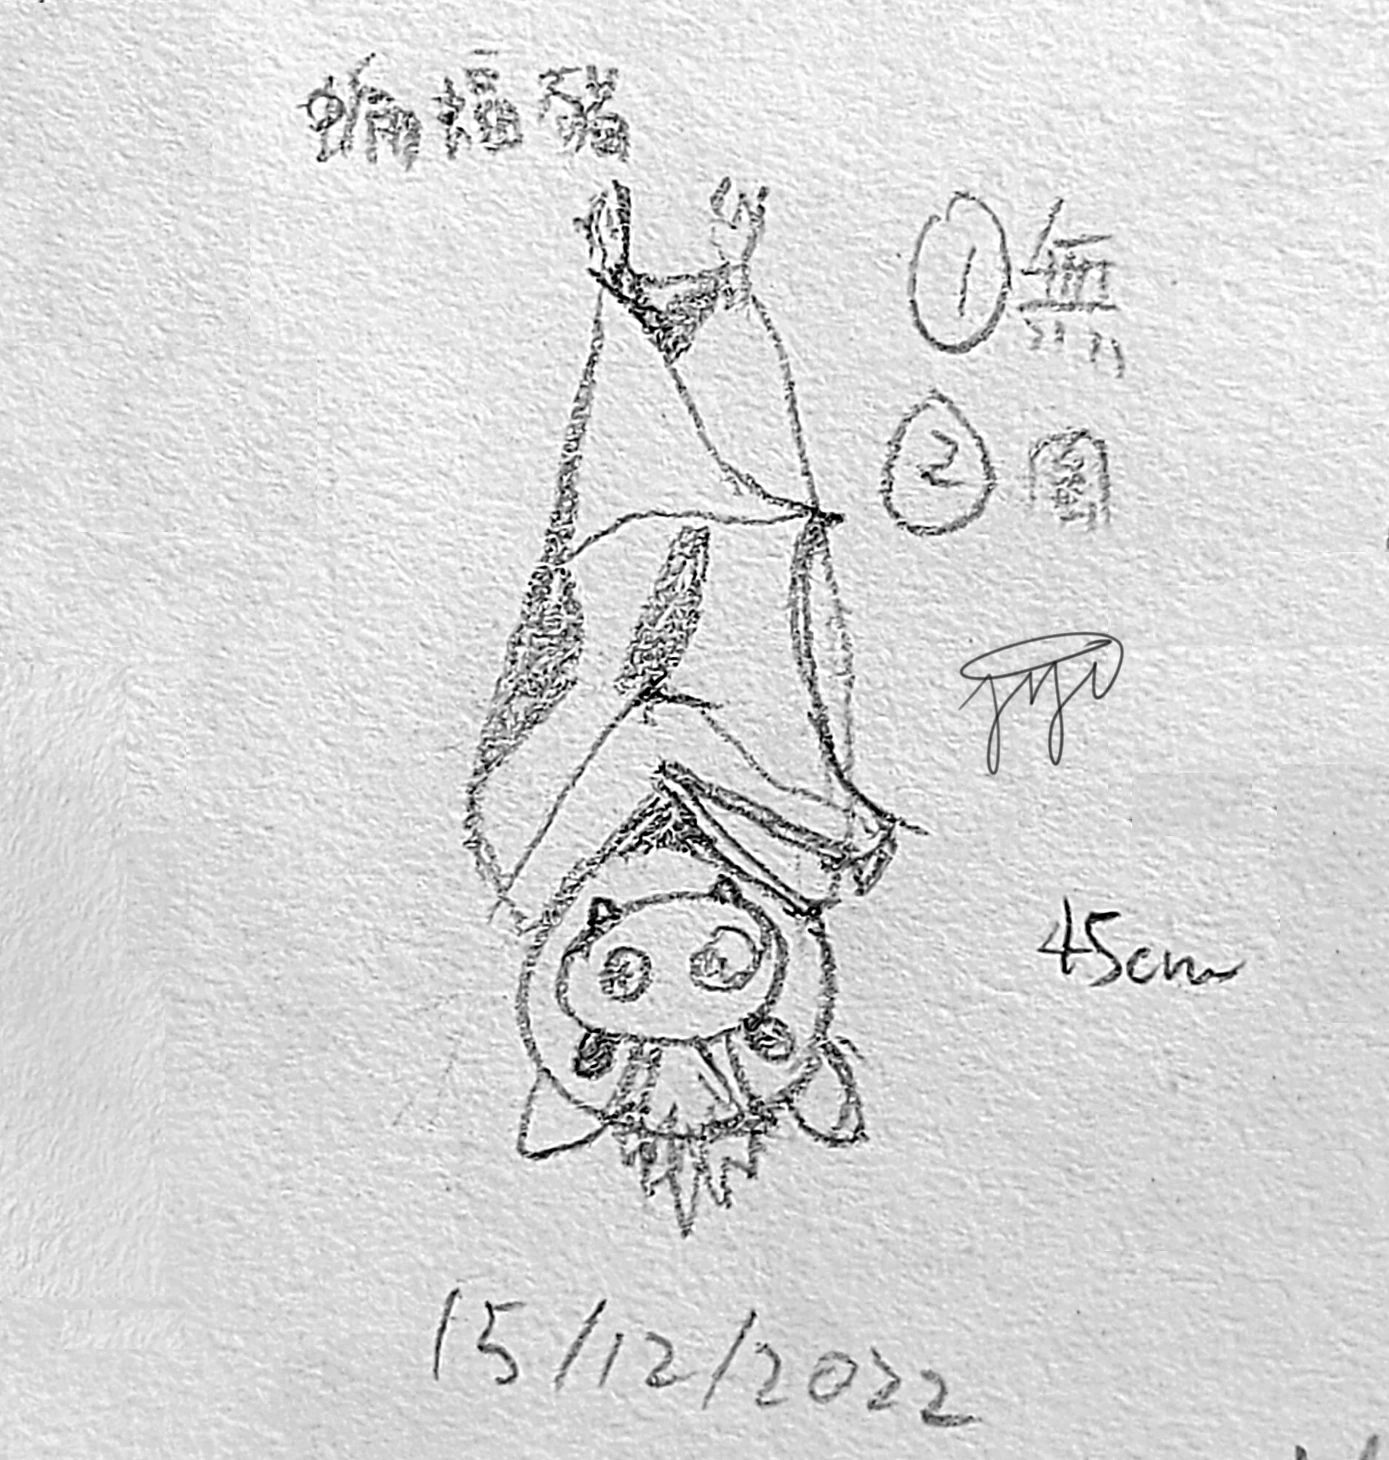 蝙蝠豬
①無
②
45cm
15/12/2022